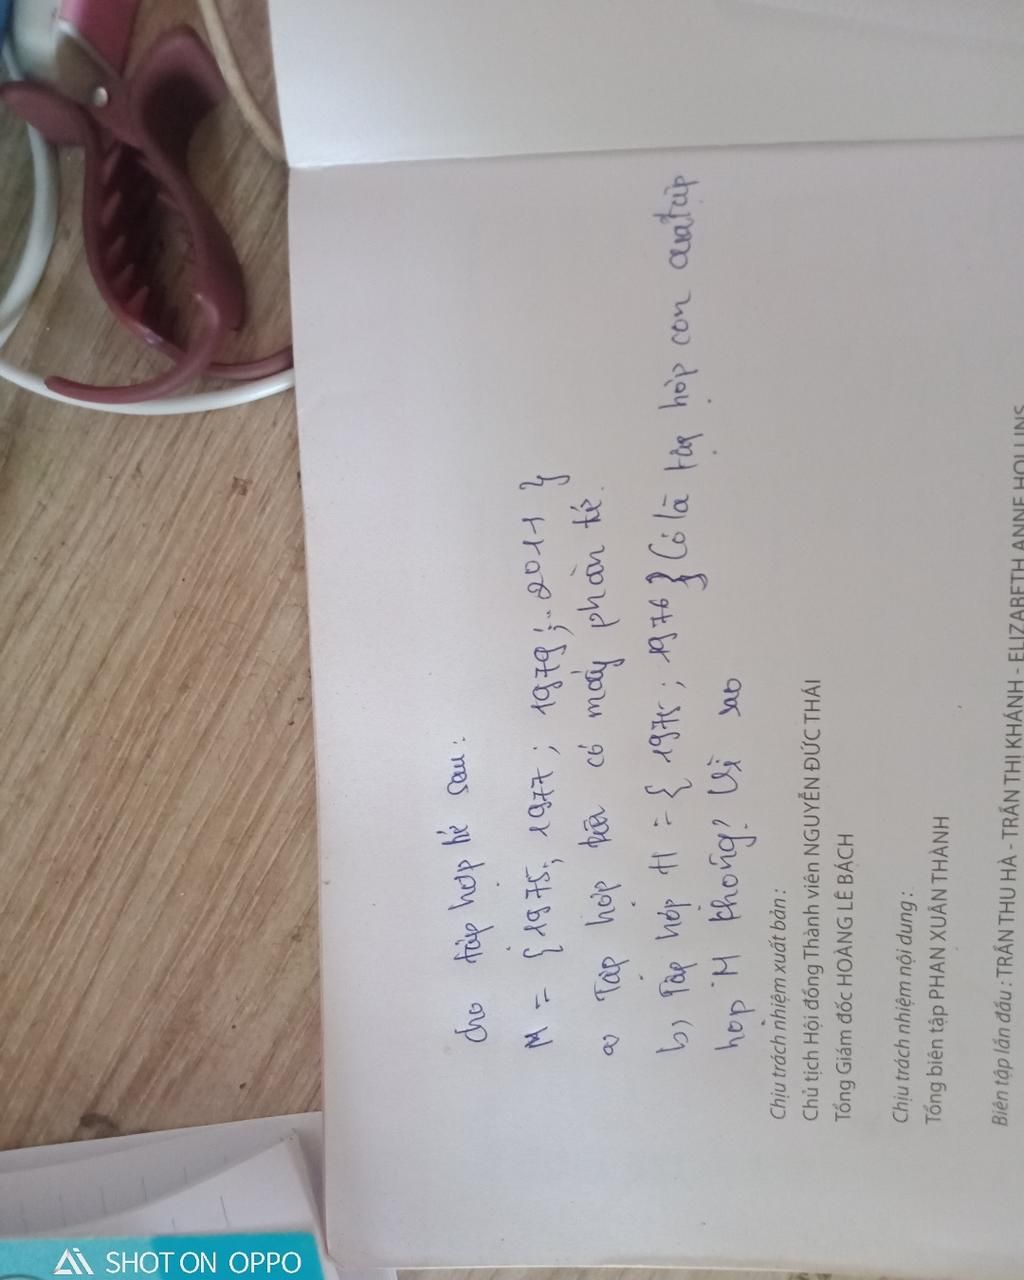 cho tập hợp số sau:
M = {1975; 1977; 1979;..2011}
a) Tập hợp trên có mấy phần tử.
b) Tập hợp H = {1975; 1976} Có là tập hợp con của tập
hợp M không? Vì sao
Chịu trách nhiệm xuất bản :
Chủ tịch Hội đồng Thành viên NGUYỄN ĐỨC THÁI
Tổng Giám đốc HOÀNG LÊ BÁCH
Chịu trách nhiệm nội dung :
Tổng biên tập PHAN XUÂN THÀNH
Biên tập lần đầu : TRẦN THU HÀ - TRẦN THỊ KHÁNH - ELIZABETH ANNE HOLLINS
SHOT ON OPPO